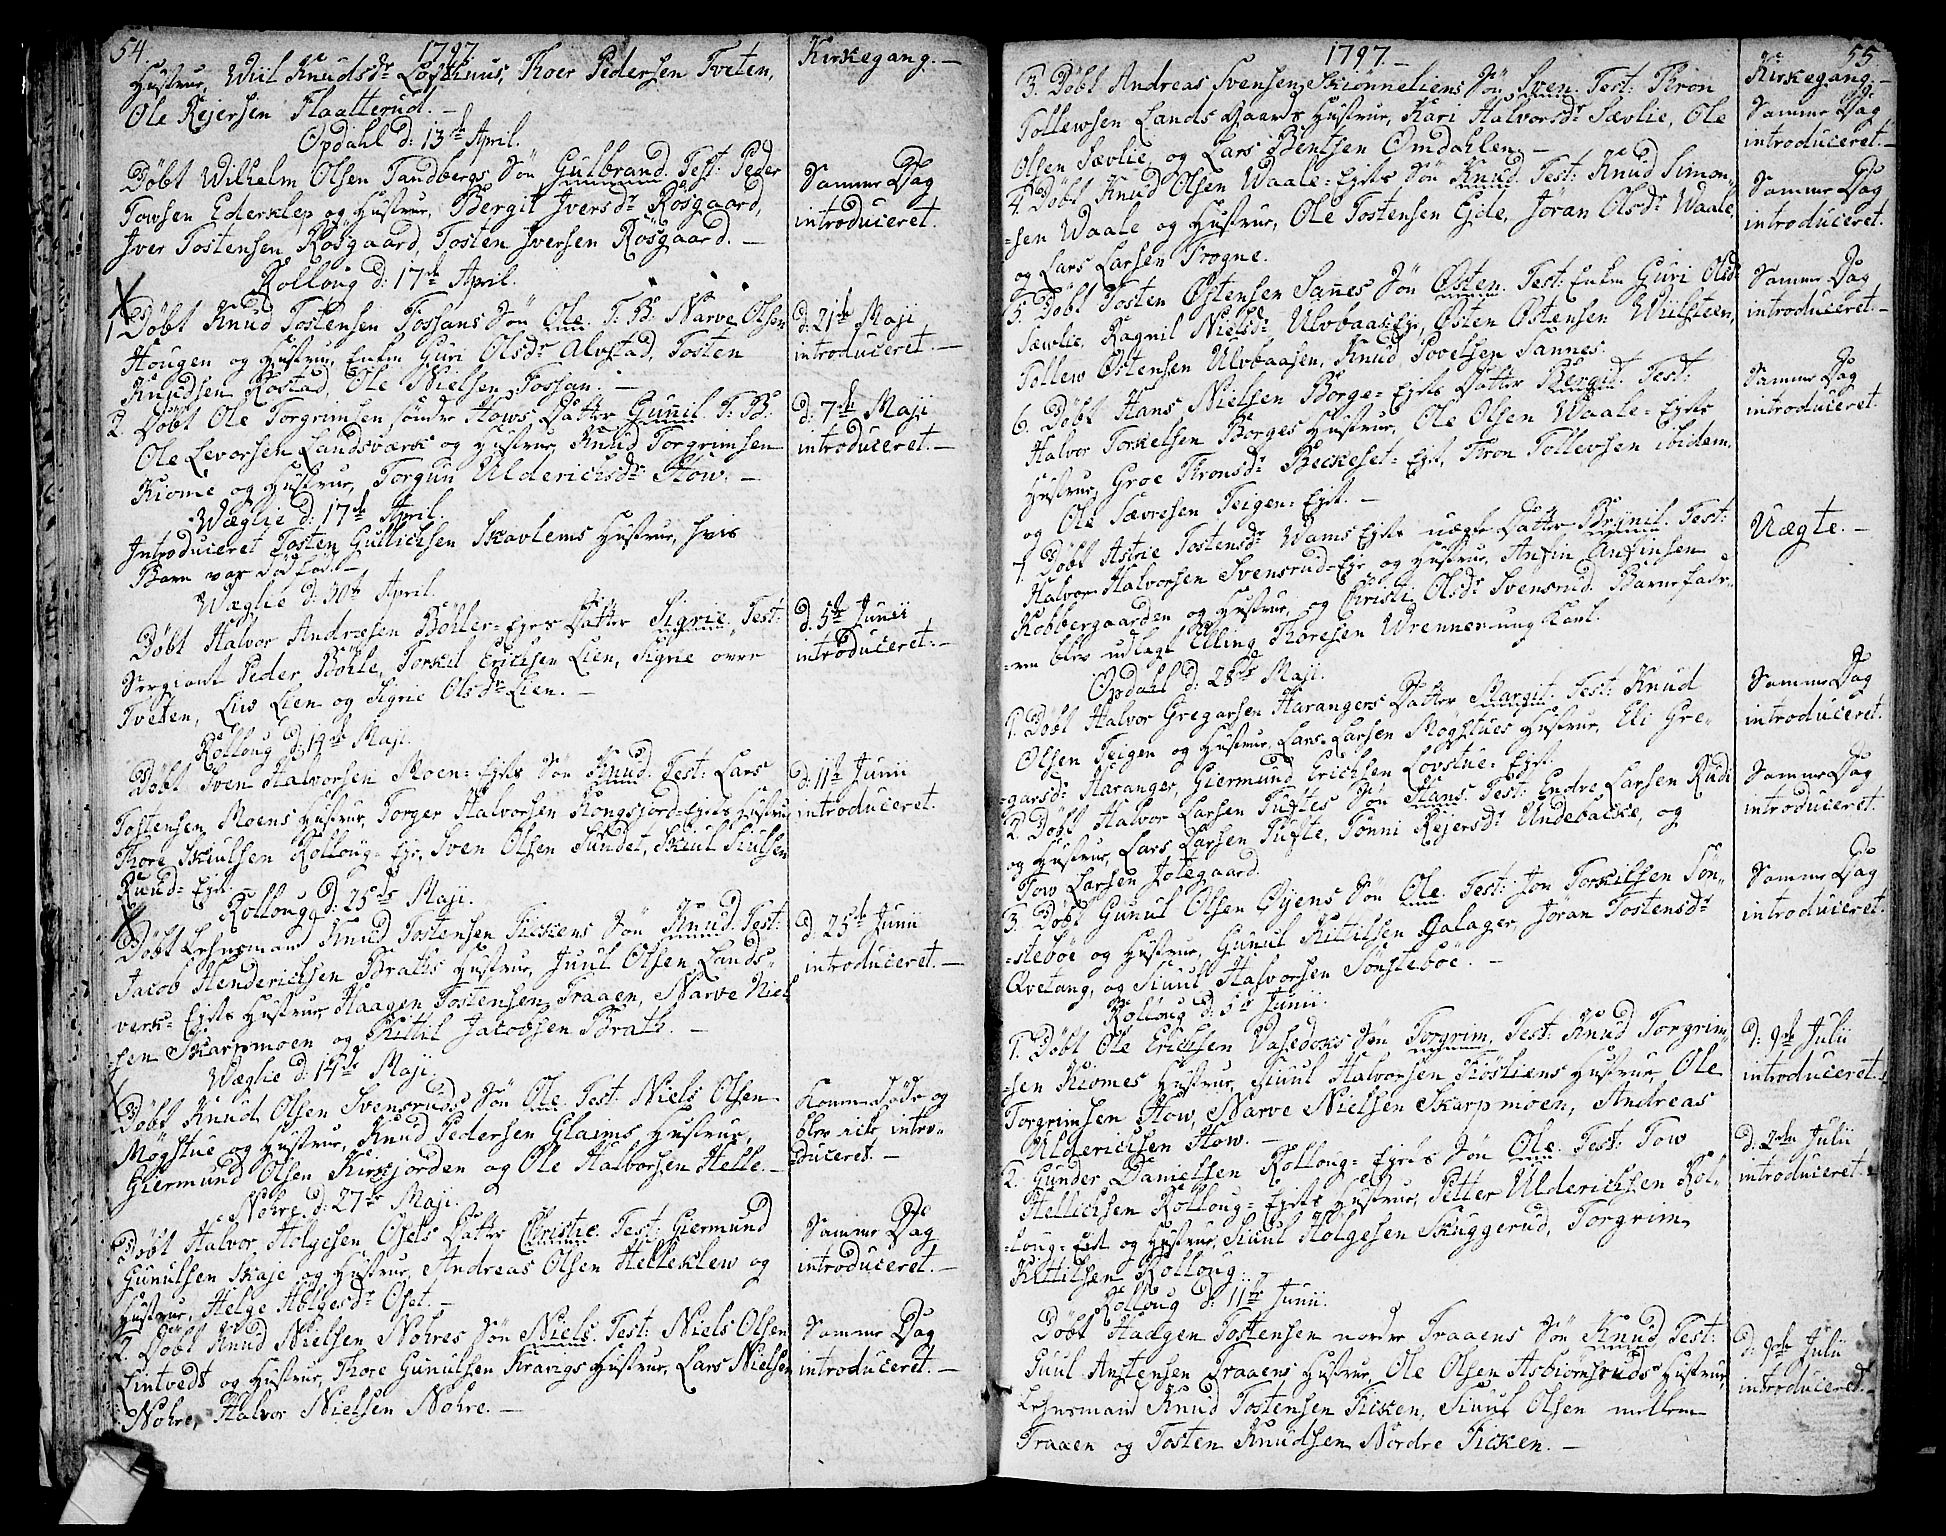 54.
1797.
Kirkegang.
Hustrue, Wiil Knudsdr Løfthuus, Thoer Pedersen Tveten,
Ole Rejersen Flaatterud.
Opdahl d: 13de April.
Døbt Wilhelm Olsen Tandbergs Søn Gulbrand. Test: Peder
Towsen Ederklep og Hustrue, Bergit Iversdr Rosgaard,
Iver Tostensen Rosgaard, Tosten Iversen Rosgaard.
Samme Dag
introduceret.
Rolloug d: 17de April.
1. Døbt Knud Tostensen Fossans Søn Ole. T: B: Narve Olsen
Hougen og Hustrue, Enken Guri Olsdr Alvstad, Tosten
Knudsen Rostad, Ole Nielsen Fossan.
d: 21de Maji
introduceret.
2. Døbt Ole Torgrimsen søndre Hows Datter Gunil. T: B:
Ole Levorsen Landsværk og Hustrue, Knud Torgrimsen
Kiome og Hustrue, Torgun Ulderichsdr How.
d: 7de Maji
introduceret.
Wæglie d: 17de April.
Introduceret Tosten Gullichsen Skavlems Hustrue, hvis
Barn var dødfød.
Wæglie d: 30te April.
Døbt Halvor Andresen Bøller-Ejets Datter Sigrie. Test:
Sergiant Peder Bøhle, Torkil Erichsen Lien, Sigrie
Tveten, Liv Lien og Sigrie Olsdr Lien.
d: 5te Junii
introduceret.
Rolloug d: 14de Maji.
Døbt Sven Halvorsen Moen-Ejets Søn Knud. Test: Lars
Tostensen Moens Hustrue, Torger Halvorsen Kongsjord-Ejets Hustrue
Thore Skiulsen Rolloug-Eje, Sven Olsen Sundet, Skiul Siulsen
Ruud-Ejet.
d: 11te Junii
introduceret.
Rolloug d: 25de Maji.
Døbt Lehnsmand Knud Tostensen Fickens Søn Knud. Test:
Jacob Henderichsen Braths Hustrue, Juul Olsen Lands-
verk-Ejets Hustrue, Haagen Tostensen Traaen, Narve Niel
-sen Skarpmoen og Kittil Jacobsen Brath.
d. 25de Junii
introduceret.
Wæglie d: 14de Maji.
Døbt Knud Olsen Svensruds Søn Ole. Test: Niels Olsen
Mogstue og Hustrue, Knud Pedersen Glaims Hustrue,
Giermund Olsen Kirkjorden og Ole Halvorsen Helle.
Konen døde og
blev icke intro-
duceret.
Nohre d: 27de Maji.
Døbt Halvor Holgesen Osets Datter Christie. Test: Giermund
Gunulsen Skaje og Hustrue, Andreas Olsen Helleklew og
Hustrue, Helge Holgesdr Oset.
Samme Dag
introduceret.
2. Døbt Knud Nielsen Nohres Søn Niels. Test: Niels Olsen
Sintvedt og Hustrue, Thore Gunulsen Kravigs Hustrue, Lars Nielsen
Nohre, Halvor Nielsen Nohre.
Samme Dag
introduceret.
1797.
55.
Kirkegang.
3. Døbt Andreas Svensen Skiønneliens Søn Sven. Test: Thron
Tollewsen Lands Gaards Hustrue, Kari Halvorsdr Sævlie, Ole
Olsen Sævlie, og Lars Bentsen Omdahlen.
Samme Dag
introduceret.
4. Døbt Knud Olsen Waale-Ejets Søn Knud. Test: Knud Simon-
-sen Waale og Hustrue, Ole Tostensen Ejde, Jøran Olsdr Waale,
og Lars Larsen Frogne.
Samme Dag
introduceret.
5. Døbt Tosten Østensen Sannes Søn Østen. Test: Enken Guri Olsdr
Sævlie, Ragnil Nielsdr Ulvbaas-Eje, Østen Østensen Wiilsteen,
Tollew Østensen Ulvbaasen, Knud Povelsen Sannes.
Samme Dag
introduceret.
6. Døbt Hans Nielsen Borge-Ejets Datter Bergit. Test:
Halvor Torkelsen Borges Hustrue, Ole Olsen Waale-Ejets
Hustrue, Groe Thronsdr Beckeset-Ejet, Thron Tollevsen ibidem,
og Ole Sævresen Teigen-Ejet.
Samme Dag
introduceret.
7. Døbt Astrie Tostensdr Wams Ejets uægte Datter Brynil. Test:
Halvor Halvorsen Svensrud-Eje og Hustrue, Anfin Anfinsen
Kobbergaarden og Hustrue, og Christi Olsdr Svensrud. Barnefade-
-ren blev udlagt Elling Thoresen Wrennen ung Karl.
Uægte.
Opdahl d: 28de Maji.
1. Døbt Halvor Gregarsen Harangers Datter Margit. Test: Knud
Olsen Teigen og Hustrue, Lars Larsen Mogstues Hustrue, Eli Gre-
-garsdr Haranger, Giermund Erichsen Lovstue-Ejet.
Samme Dag
introduceret.
2. Døbt Halvor Larsen Tuftes Søn Hans. Test: Endre Larsen Rudi
og Hustrue, Lars Larsen Tufte, Tønni Rejersdr Undebacke, og
Tow Larsen Jotegaard.
Samme Dag
introduceret.
3. Døbt Gunul Olsen Øyens Søn Ole. Test: Jon Torkilsen Søn-
-stebøe og Hustrue, Gunul Kittilsen Jalager, Jøran Tostensdr
Qvetang, og Siuul Halvorsen Sønstebøe.
Samme Dag
introduceret.
Rolloug d: 5te Junii.
1. Døbt Ole Erichsen Vaseboxs Søn Torgrim. Test: Knud Torgrim-
-sen Kiomes Hustrue, Siuul Halvorsen Fiøstiens Hustrue, Ole
Torgrimsen How, Narve Nielsen Skarpmoen, Andreas
Ulderichsen How.
D: 9de Julii
introduceret.
2. Gunder Danielsen Rolloug-Ejets Søn Ole. Test: Tow
Hellichsen Rolloug-Ejets Hustrue, Petter Ulderichsen Rol-
-loug-Ejet og Hustrue, Siuul Holgesen Skuggerud, Torgrim
Kittilsen Rolloug.
d: 2den Julii
introduceret.
Rolloug d: 11te Junii.
Døbt Haagen Tostensen nordre Traaens Søn Knud. Test:
Guul Anstensen Traaens Hustrue, Ole Olsen Asbiørnsruds Hustrue,
Lehnsmand Knud Tostensen Ficken, Siuul Olsen mellem
Traaen og Tosten Knudsen Nordre Ficken.
d: 9de Julii
introduceret.